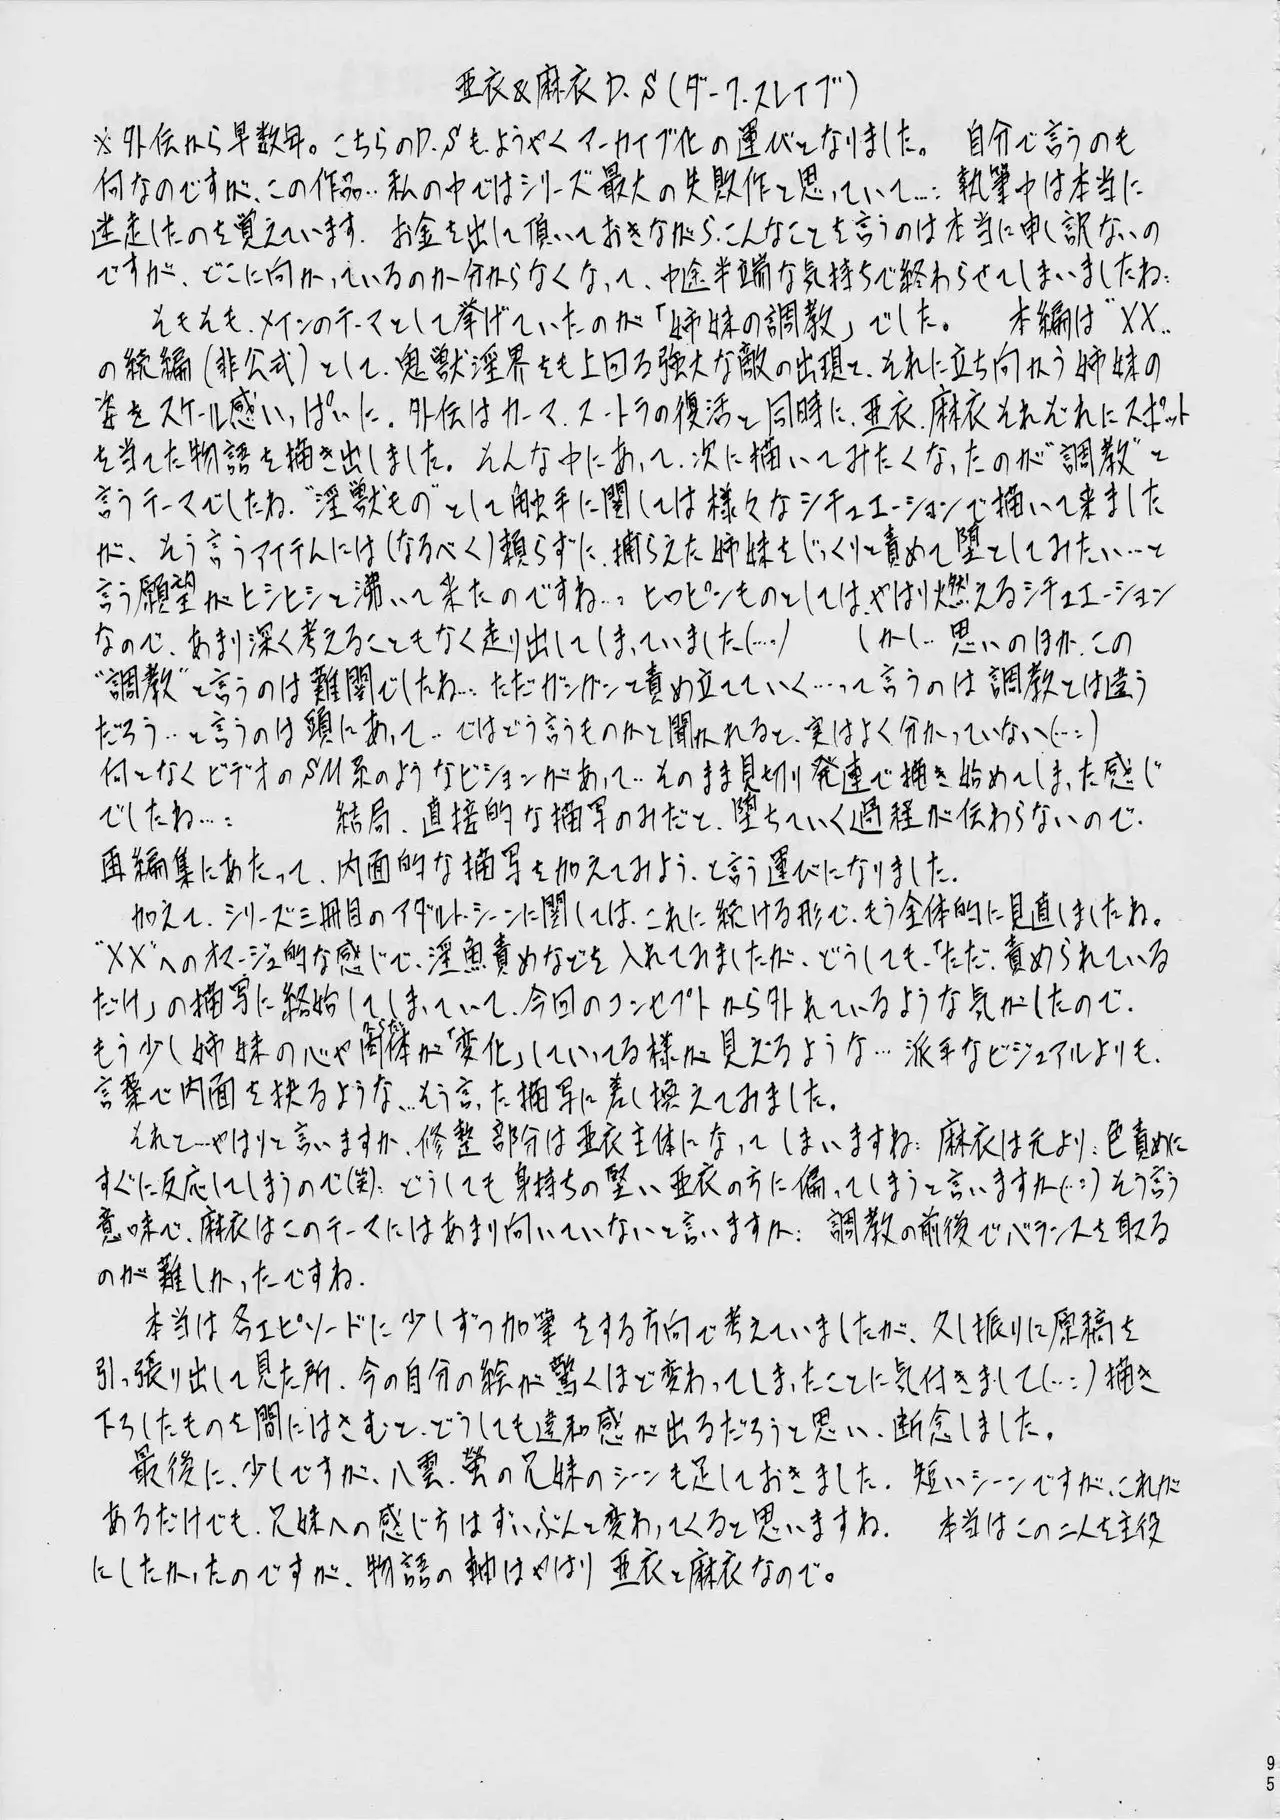 亜衣&麻衣D.S(ダーク.スレイブ)
※外伝から早数年。こちらのD.Sも、ようやくアーカイブ化の運びとなりました。 自分で言うのも
何なのですが、この作品…私の中ではシリーズ最大の失敗作と思っていて…: 執筆中は本当に
迷走したのを覚えています. お金を出して頂いておきながら、こんなことを言うのは本当に申し訳ないの
ですが、どこに向かっているのか分からなくなって、中途半端な気持ちで終わらせてしまいましたね:
そもそも、メインのテーマとして挙げていたのが「姉妹の調教」でした。 本編は“XX..
の続編(非公式)として、鬼獣淫界をも上回る強大な敵の出現と、それに立ち向かう姉妹の
姿をスケール感いっぱいに。外伝はカーマ.スートラの復活と同時に、亜衣.麻衣それぞれにスポット
を当てた物語を描き出しました。そんな中にあって、次に描いてみたくなったのが“調教”と
言うテーマでしたね.“淫獣もの”として触手に関しては様々なシチュエーションで描いて来ました
が、そう言うアイテムには(なるべく)頼らずに、捕らえた姉妹をじっくりと責めて堕としてみたい…と
言う願望がヒシヒシと沸いて来たのですね…: ヒロピンものとしては、やはり燃えるシチュエーション
なので、あまり深く考えることもなく走り出してしまっていました(….) しかし… 思いのほか、この
“調教”と言うのは難関でしたね…: ただガンガンと責め立てていく…って言うのは調教とは違う
だろう…と言うのは頭にあって… ではどう言うものかと聞かれると、実はよく分かっていない(…:)
何となくビデオのSM系のようなビジョンがあって… そのまま見切り発進で描き始めてしまった感じ
でしたね…: 結局、直接的な描写のみだと、堕ちていく過程が伝わらないので、
再編集にあたって、内面的な描写を加えてみよう、と言う運びになりました.
加えて、シリーズ三冊目のアダルト.シーンに関しては、これに続ける形で、もう全体的に見直しましたね。
“XX”へのオマージュ的な感じで、淫魚責めなどを入れてみましたが、どうしても、「ただ、責められている
だけ」の描写に終始してしまっていて、今回のコンセプトから外れているような気がしたので、
もう少し姉妹の心や体が「変化」していってる様が見えるような… 派手なビジュアルよりも、
言葉で内面を抉るような、…そう言った描写に差し換えてみました。
それと…やはりと言いますか、修整部分は亜衣主体になってしまいますね: 麻衣は元より: 色責めに
すぐに反応してしまうので(笑): どうしても身持ちの堅い亜衣の方に偏ってしまうと言いますか(…:)そう言う
意味で、麻衣はこのテーマにはあまり向いていないと言いますか: 調教の前後でバランスを取る
のが難しかったですね.
本当は各エピソードに少しずつ加筆をする方向で考えていましたが、久し振りに原稿を
引っ張り出して見た所、今の自分の絵が驚くほど変わってしまったことに気付きまして(…:)描き
下ろしたものを間にはさむと、どうしても違和感が出るだろうと思い、断念しました。
最後に、少しですが、八雲.螢の兄妹のシーンも足しておきました. 短いシーンですが、これが
あるだけでも、兄妹への感じ方はずいぶんと変わってくると思いますね. 本当はこの二人を主役
にしたかったのですが、物語の軸はやはり亜衣と麻衣なので。
95